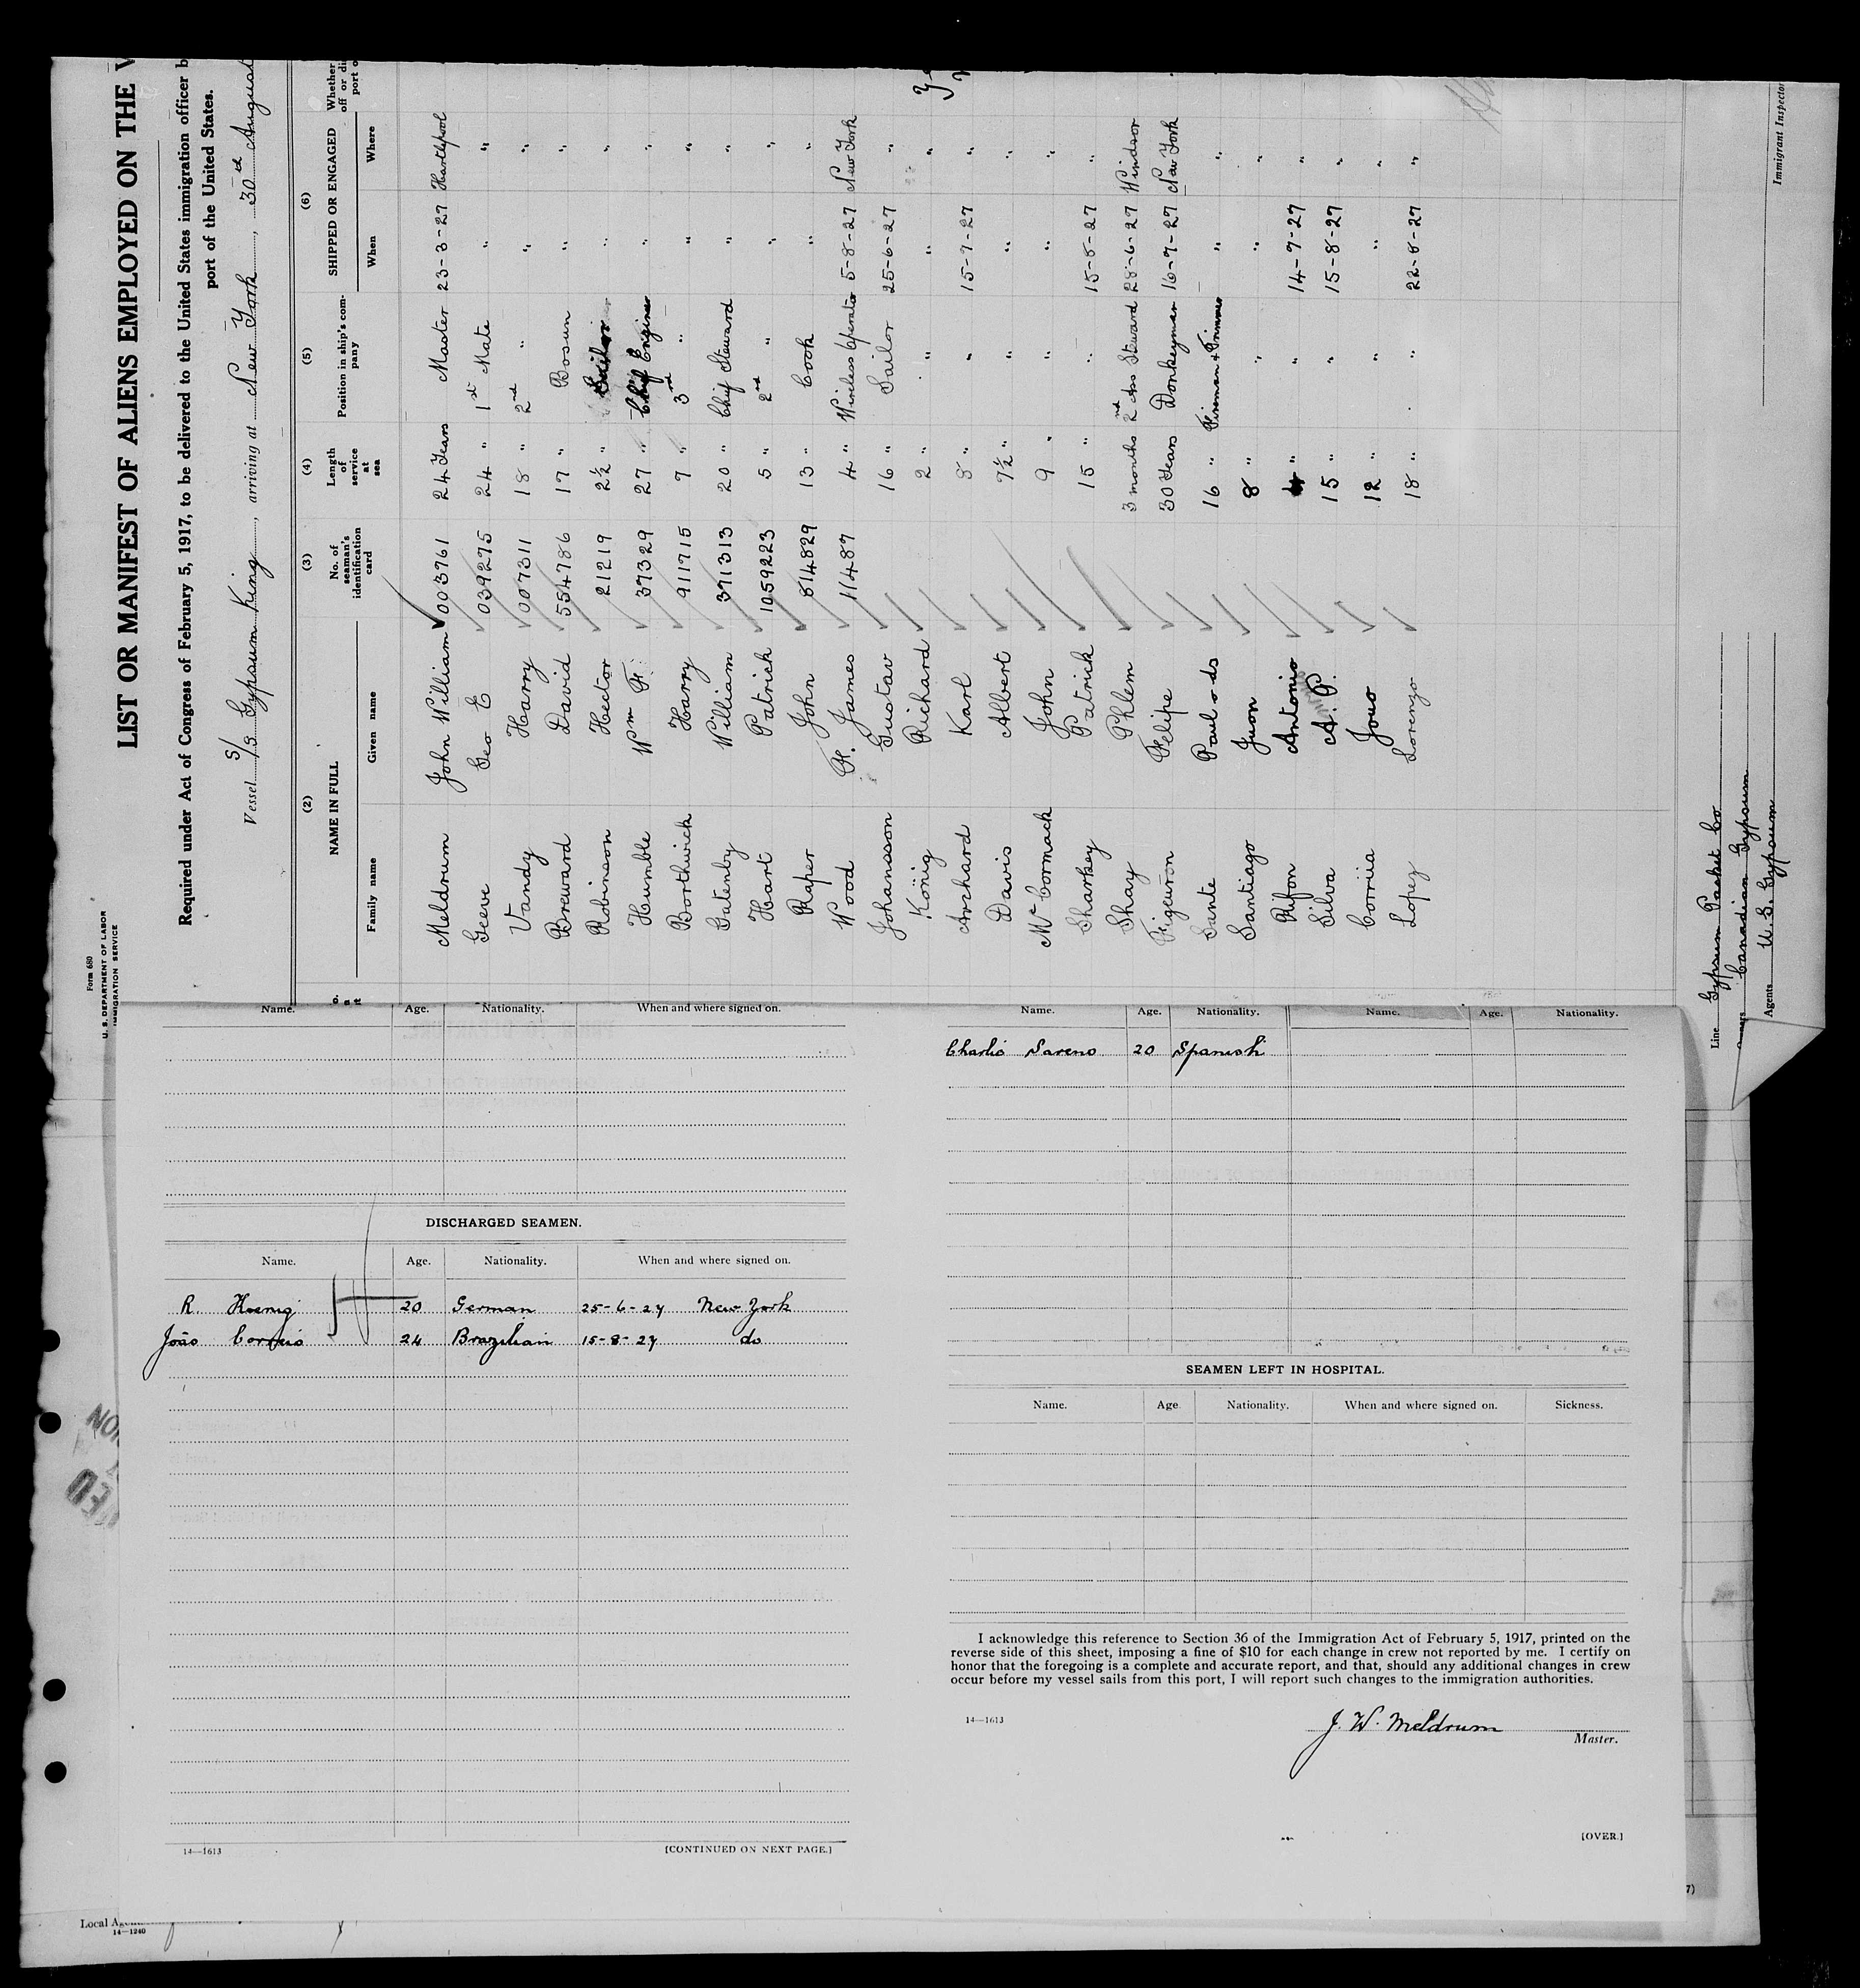 Form 680
U. S. DEPARTMENT OF LABOR
IMMIGRATION SERVICE
LIST OR MANIFEST OF ALIENS EMPLOYED ON THE
Required under Act of Congress of February 5, 1917, to be delivered to the United States immigration officer
port of the United States.
Vessel S/S Gypsum King, arriving at New York, 30th August
(2) (3) (4) (5) (6)
NAME IN FULL No. of seaman's identification card Length of service at sea Position in ship's company SHIPPED OR ENGAGED Whether
Family name Given name When Where
Meldrum John William 003761 24 Years Master 23-3-27 Hartlepool
Geeve Geo E 039275 24 " 1st Mate " "
Vandy Harry 007311 18 " 2nd " " "
Breward David 554786 17 " Bosun " "
Robinson Hector 21219 2½ " " "
Humble Wm F. 37329 27 " Chief Engineer " "
Borthwick Harry 911715 7 " 3rd " " "
Gatenby William 371313 20 " Chief Steward " "
Hart Patrick 1059223 5 " 2nd " " "
Raper John 814829 13 " Cook " "
Wood F. James 11487 4 " Wireless Operator 5-8-27 New York
Johansson Gustav 16 " Sailor 25-6-27 "
König Richard 2 " " " "
Archard Karl 8 " " 15-7-27 "
Davis Albert 7½ " " " "
McCormack John 9 " " " "
Sharkey Patrick 15 " " 15-8-27 "
Shay Phlem 3 months 2nd Ass Steward 28-6-27 Windsor
Figeuron Felipe 30 Years Donkeyman 16-7-27 New York
Sante Paulo ds 16 " Fireman & Trimmer " "
Santiago Juon 8 " " " "
Rifon Antonio " " 14-7-27 "
Silva A. P. 15 " " 15-8-27 "
Corriia Jouo 12 " " " "
Lopez Lorenzo 18 " " 22-8-27 "
Line Gypsum Packet Co
Canadian Gypsum
Agents U.S. Gypsum
Immigrant Inspector
Name. Age. Nationality. When and where signed on.
DISCHARGED SEAMEN.
Name. Age. Nationality. When and where signed on.
R. Koenig 20 German 25-6-27 New York
João Correio 24 Brazilian 15-8-27 do
14—1613 [CONTINUED ON NEXT PAGE.]
Name. Age. Nationality. Name. Age. Nationality.
Charlio Sareno 20 Spanish
SEAMEN LEFT IN HOSPITAL.
Name. Age Nationality. When and where signed on. Sickness.
I acknowledge this reference to Section 36 of the Immigration Act of February 5, 1917, printed on the
reverse side of this sheet, imposing a fine of $10 for each change in crew not reported by me. I certify on
honor that the foregoing is a complete and accurate report, and that, should any additional changes in crew
occur before my vessel sails from this port, I will report such changes to the immigration authorities.
14—1613
J. W. Meldrum
Master.
[OVER.]
Local
14—1240